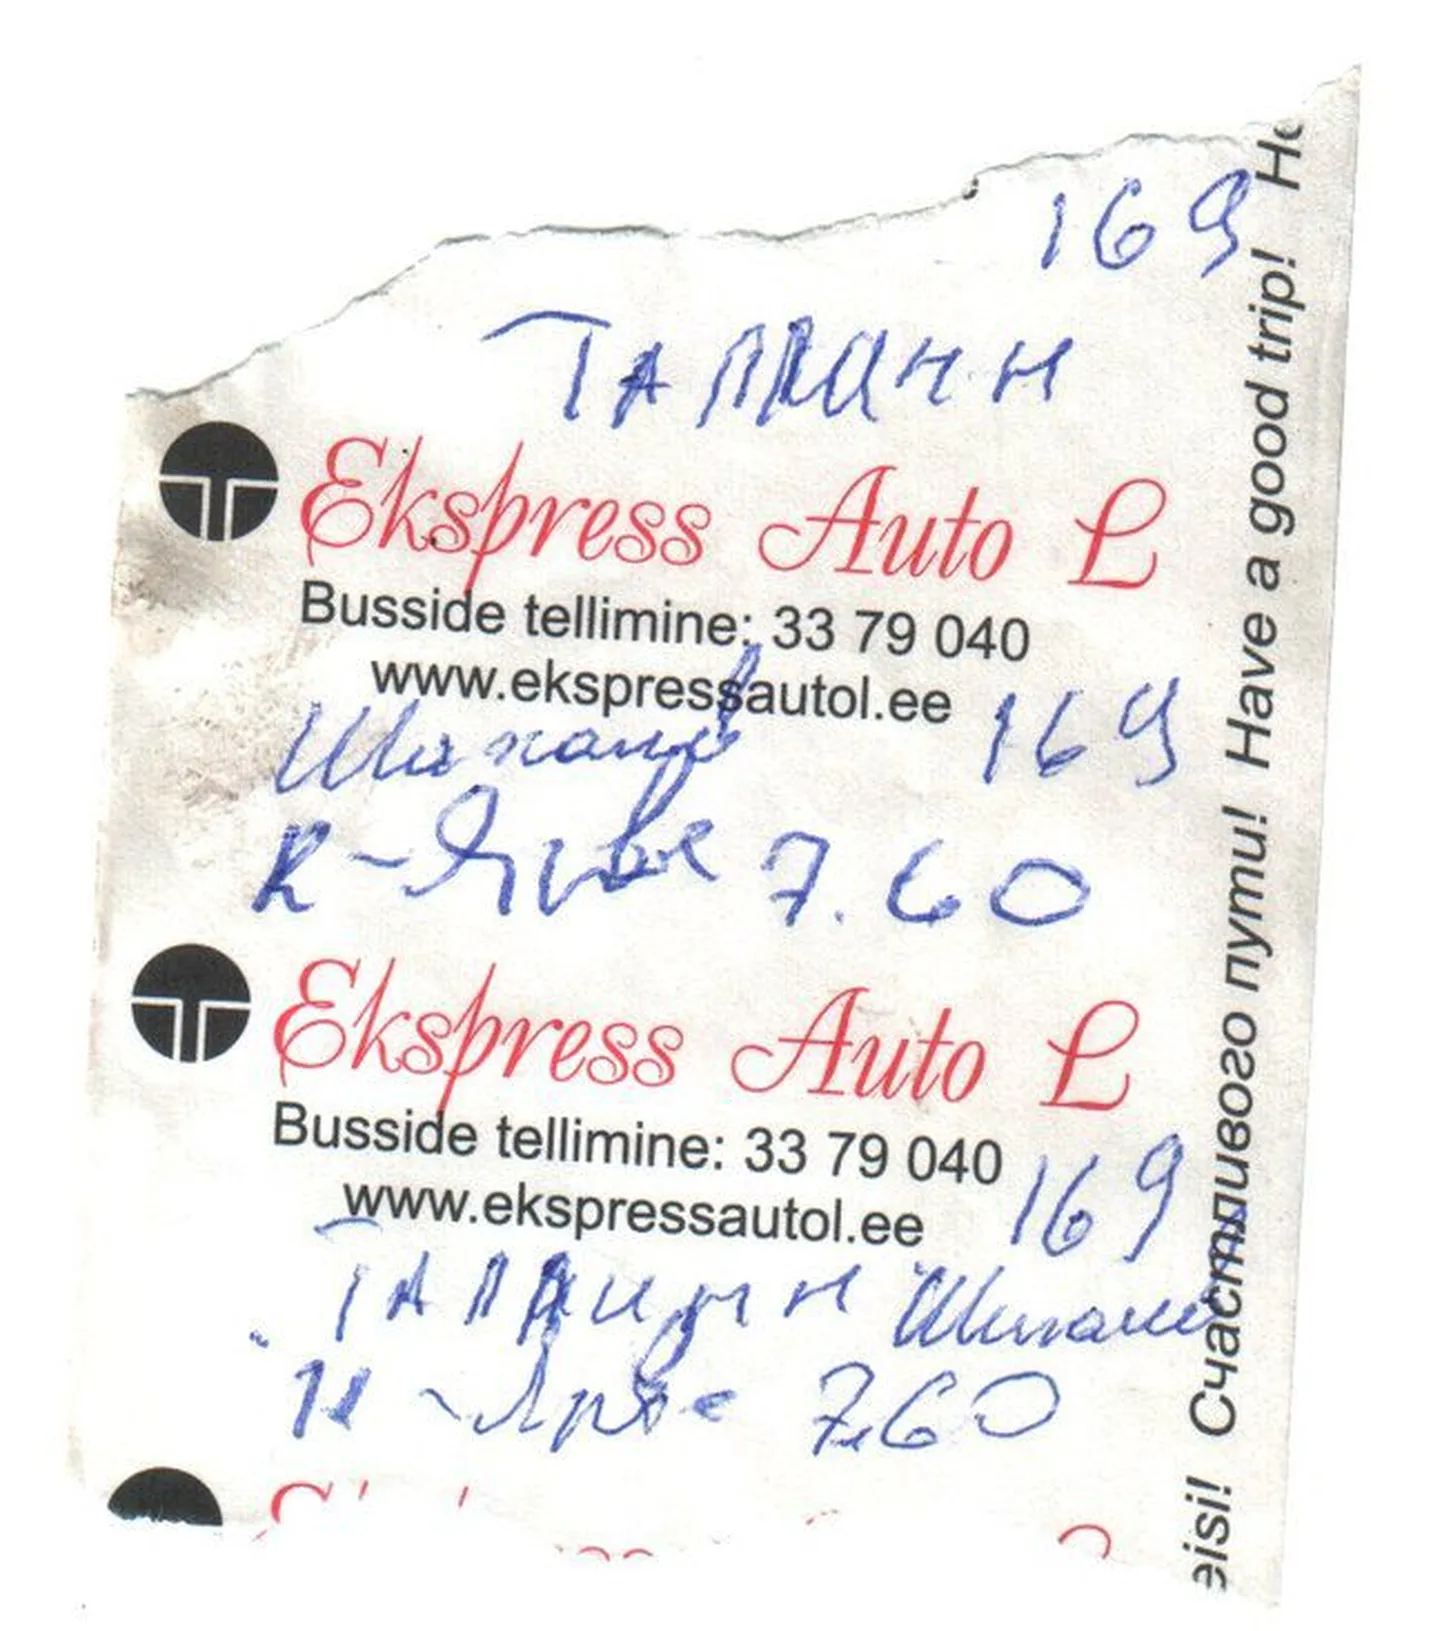 169
Таллинн
Ekspress Auto L
Busside tellimine: 33 79 040
www.ekspressautol.ee
169
К-Ярве 7.60
Ekspress Auto L
Busside tellimine: 33 79 040
www.ekspressautol.ee
169
Таллинн
К-Ярве 7.60
eisi! Счастливого пути! Have a good trip! He